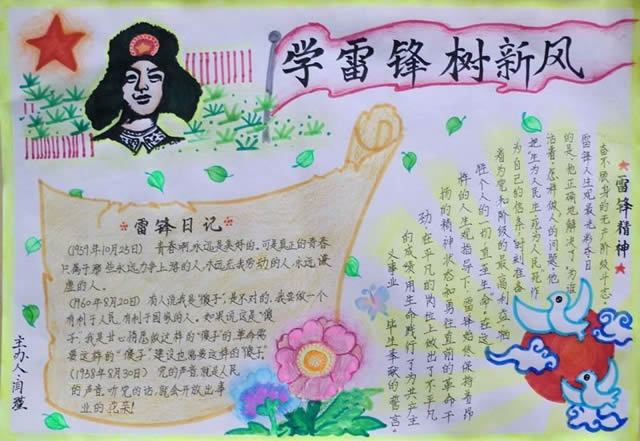 学雷锋树新风
雷锋日记
(1959年10月25日) 青春啊,永远是美好的,可是真正的青春
只属于那些永远力争上游的人,永远忘我劳动的人,永远谦
虚的人。
(1960年8月20日) 有人说我是"傻子",是不对的,我要做一个
有利于人民,有利于国家的人。如果说这是"傻
子",我是甘心情愿做这样的"傻子"的,革命需
要这样的"傻子",建设也需要这样的"傻子"。
(1958年8月30日) 党的声音就是人民
的声音,听党的话,就会开放出事
业的花朵!
主办人:肖瑾
雷锋精神
奋不顾身的无产阶级斗志。
雷锋人生观最光彩夺目
的是,他正确地解决了"为谁
活着,怎样做人的问题,他
把"生为人民生,死为人民死"作
为自己的信条,时刻准备
着为党和阶级的最高利益牺
牲个人的一切,直至生命。在这
样的人生观指导下,雷锋始终保持着昂
扬的精神状态和勇往直前的革命干
劲,在平凡的岗位上做出了不平凡
的成绩,用生命践行了为共产主
义事业 毕生奉献的誓言。